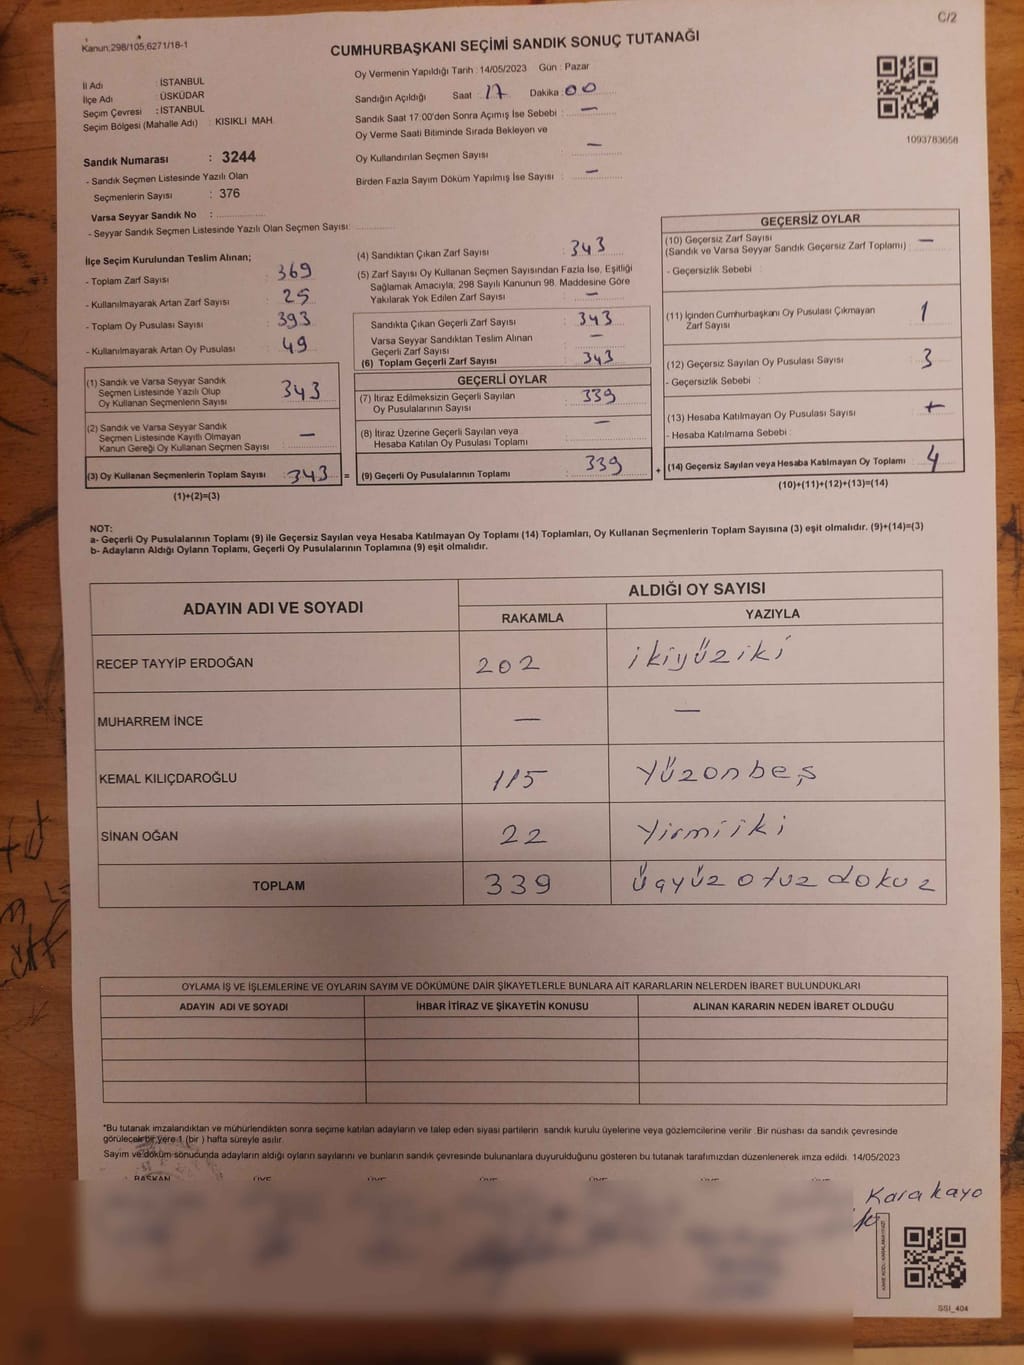 C/2
Kanun:298/105,6271/18-1
CUMHURBAŞKANI SEÇİMİ SANDIK SONUÇ TUTANAĞI
İl Adı : İSTANBUL
İlçe Adı : ÜSKÜDAR
Seçim Çevresi : İSTANBUL
Seçim Bölgesi (Mahalle Adı) : KISIKLI MAH.
Sandık Numarası : 3244
- Sandık Seçmen Listesinde Yazılı Olan
Seçmenlerin Sayısı : 376
Varsa Seyyar Sandık No :
- Seyyar Sandık Seçmen Listesinde Yazılı Olan Seçmen Sayısı:
Oy Vermenin Yapıldığı Tarih : 14/05/2023 Gün : Pazar
Sandığın Açıldığı Saat : 17 Dakika : 00
Sandık Saat 17:00'den Sonra Açımış İse Sebebi : —
Oy Verme Saati Bitiminde Sırada Bekleyen ve
Oy Kullandırılan Seçmen Sayısı : —
Birden Fazla Sayım Döküm Yapılmış İse Sayısı : —
1093783658
İlçe Seçim Kurulundan Teslim Alınan;
- Toplam Zarf Sayısı : 369
- Kullanılmayarak Artan Zarf Sayısı : 25
- Toplam Oy Pusulası Sayısı : 393
- Kullanılmayarak Artan Oy Pusulası : 49
(1) Sandık ve Varsa Seyyar Sandık
Seçmen Listesinde Yazılı Olup
Oy Kullanan Seçmenlerin Sayısı : 343
(2) Sandık ve Varsa Seyyar Sandık
Seçmen Listesinde Kayıtlı Olmayan
Kanun Gereği Oy Kullanan Seçmen Sayısı : —
(3) Oy Kullanan Seçmenlerin Toplam Sayısı : 343 =
(1)+(2)=(3)
(4) Sandıktan Çıkan Zarf Sayısı : 343
(5) Zarf Sayısı Oy Kullanan Seçmen Sayısından Fazla İse, Eşitliği
Sağlamak Amacıyla, 298 Sayılı Kanunun 98. Maddesine Göre
Yakılarak Yok Edilen Zarf Sayısı : —
Sandıkta Çıkan Geçerli Zarf Sayısı : 343
Varsa Seyyar Sandıktan Teslim Alınan
Geçerli Zarf Sayısı : —
(6) Toplam Geçerli Zarf Sayısı : 343
GEÇERLİ OYLAR
(7) İtiraz Edilmeksizin Geçerli Sayılan
Oy Pusulalarının Sayısı : 339
(8) İtiraz Üzerine Geçerli Sayılan veya
Hesaba Katılan Oy Pusulası Toplamı : —
(9) Geçerli Oy Pusulalarının Toplamı : 339 +
GEÇERSİZ OYLAR
(10) Geçersiz Zarf Sayısı
(Sandık ve Varsa Seyyar Sandık Geçersiz Zarf Toplamı) : —
- Geçersizlik Sebebi :
(11) İçinden Cumhurbaşkanı Oy Pusulası Çıkmayan
Zarf Sayısı : 1
(12) Geçersiz Sayılan Oy Pusulası Sayısı : 3
- Geçersizlik Sebebi :
(13) Hesaba Katılmayan Oy Pusulası Sayısı :
- Hesaba Katılmama Sebebi :
(14) Geçersiz Sayılan veya Hesaba Katılmayan Oy Toplamı : 4
(10)+(11)+(12)+(13)=(14)
NOT:
a- Geçerli Oy Pusulalarının Toplamı (9) ile Geçersiz Sayılan veya Hesaba Katılmayan Oy Toplamı (14) Toplamları, Oy Kullanan Seçmenlerin Toplam Sayısına (3) eşit olmalıdır. (9)+(14)=(3)
b- Adayların Aldığı Oyların Toplamı, Geçerli Oy Pusulalarının Toplamına (9) eşit olmalıdır.
ADAYIN ADI VE SOYADI ALDIĞI OY SAYISI
RAKAMLA YAZIYLA
RECEP TAYYİP ERDOĞAN 202 ikiyüziki
MUHARREM İNCE — —
KEMAL KILIÇDAROĞLU 115 Yüzonbeş
SİNAN OĞAN 22 Yirmiiki
TOPLAM 339 Üçyüz otuz dokuz
OYLAMA İŞ VE İŞLEMLERİNE VE OYLARIN SAYIM VE DÖKÜMÜNE DAİR ŞİKAYETLERLE BUNLARA AİT KARARLARIN NELERDEN İBARET BULUNDUKLARI
ADAYIN ADI VE SOYADI İHBAR İTİRAZ VE ŞİKAYETİN KONUSU ALINAN KARARIN NEDEN İBARET OLDUĞU
*Bu tutanak imzalandıktan ve mühürlendikten sonra seçime katılan adayların ve talep eden siyasi partilerin sandık kurulu üyelerine veya gözlemcilerine verilir. Bir nüshası da sandık çevresinde
görülecek bir yere 1 (bir ) hafta süreyle asılır.
Sayım ve döküm sonucunda adayların aldığı oyların sayılarını ve bunların sandık çevresinde bulunanlara duyurulduğunu gösteren bu tutanak tarafımızdan düzenlenerek imza edildi. 14/05/2023
BAŞKAN ÜYE ÜYE ÜYE ÜYE ÜYE
Karakaya
SSI_404